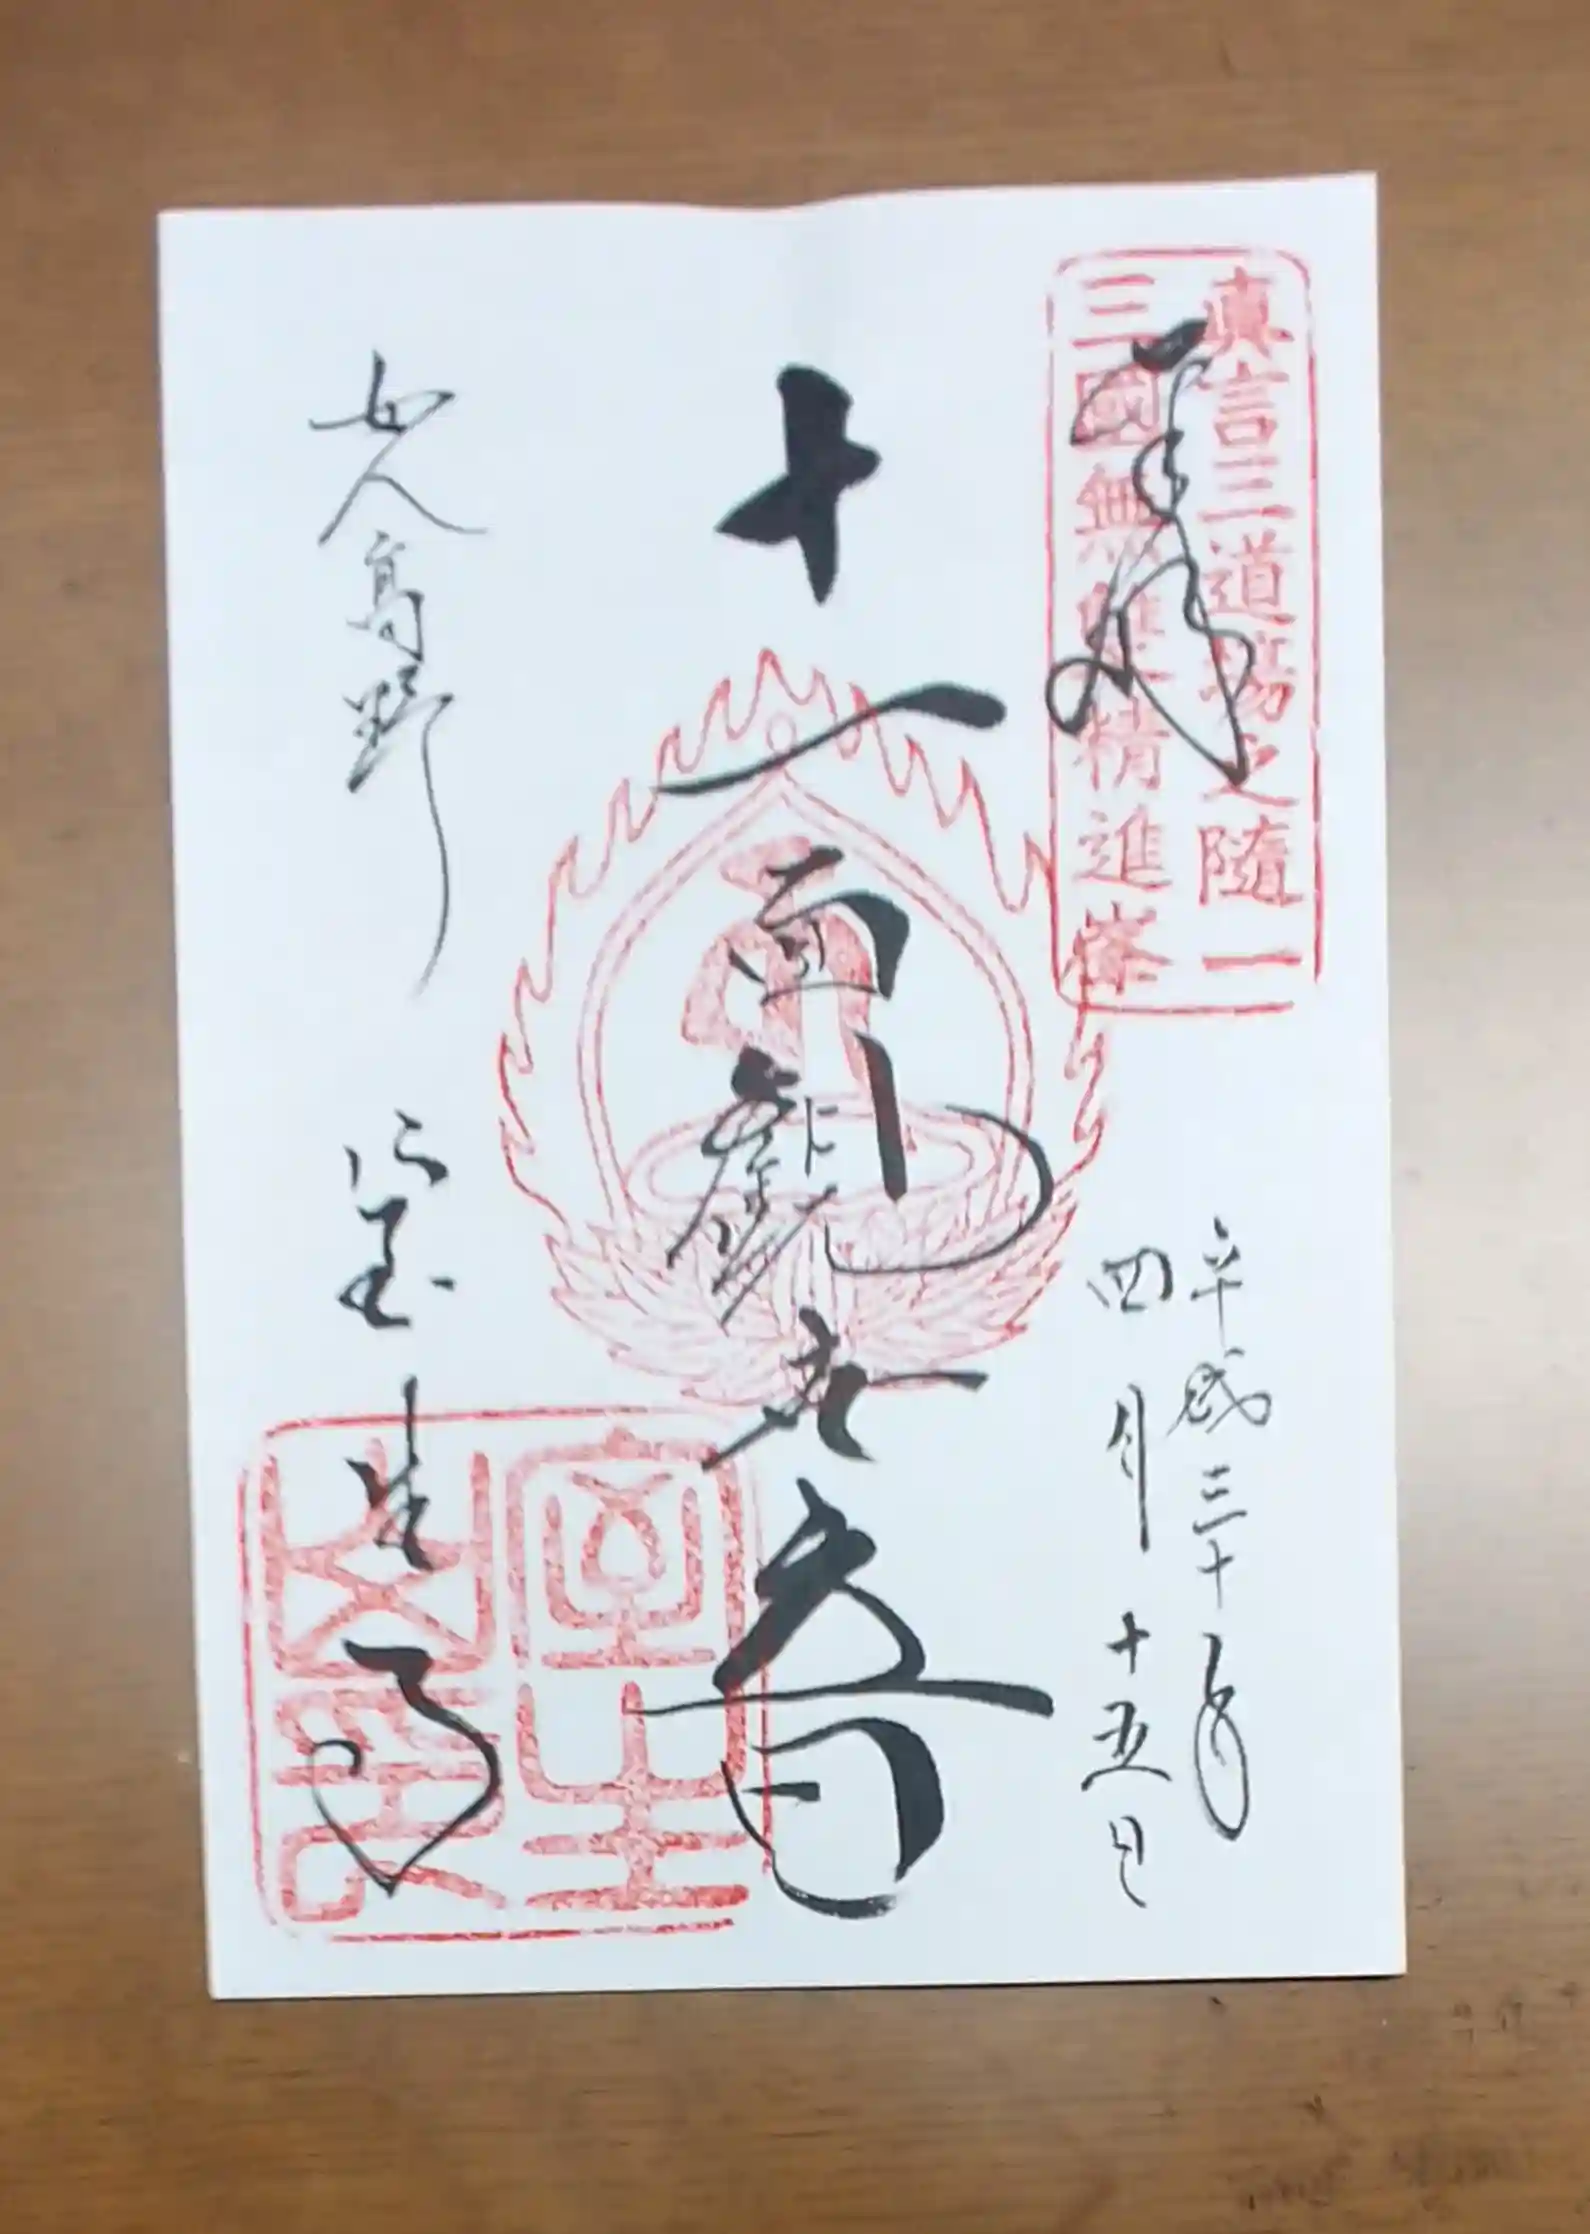 真言三道場之隨一
三國無雙精進峯
奉拝
平成三十年
四月十五日
十一面観世音
女人高野
室生寺